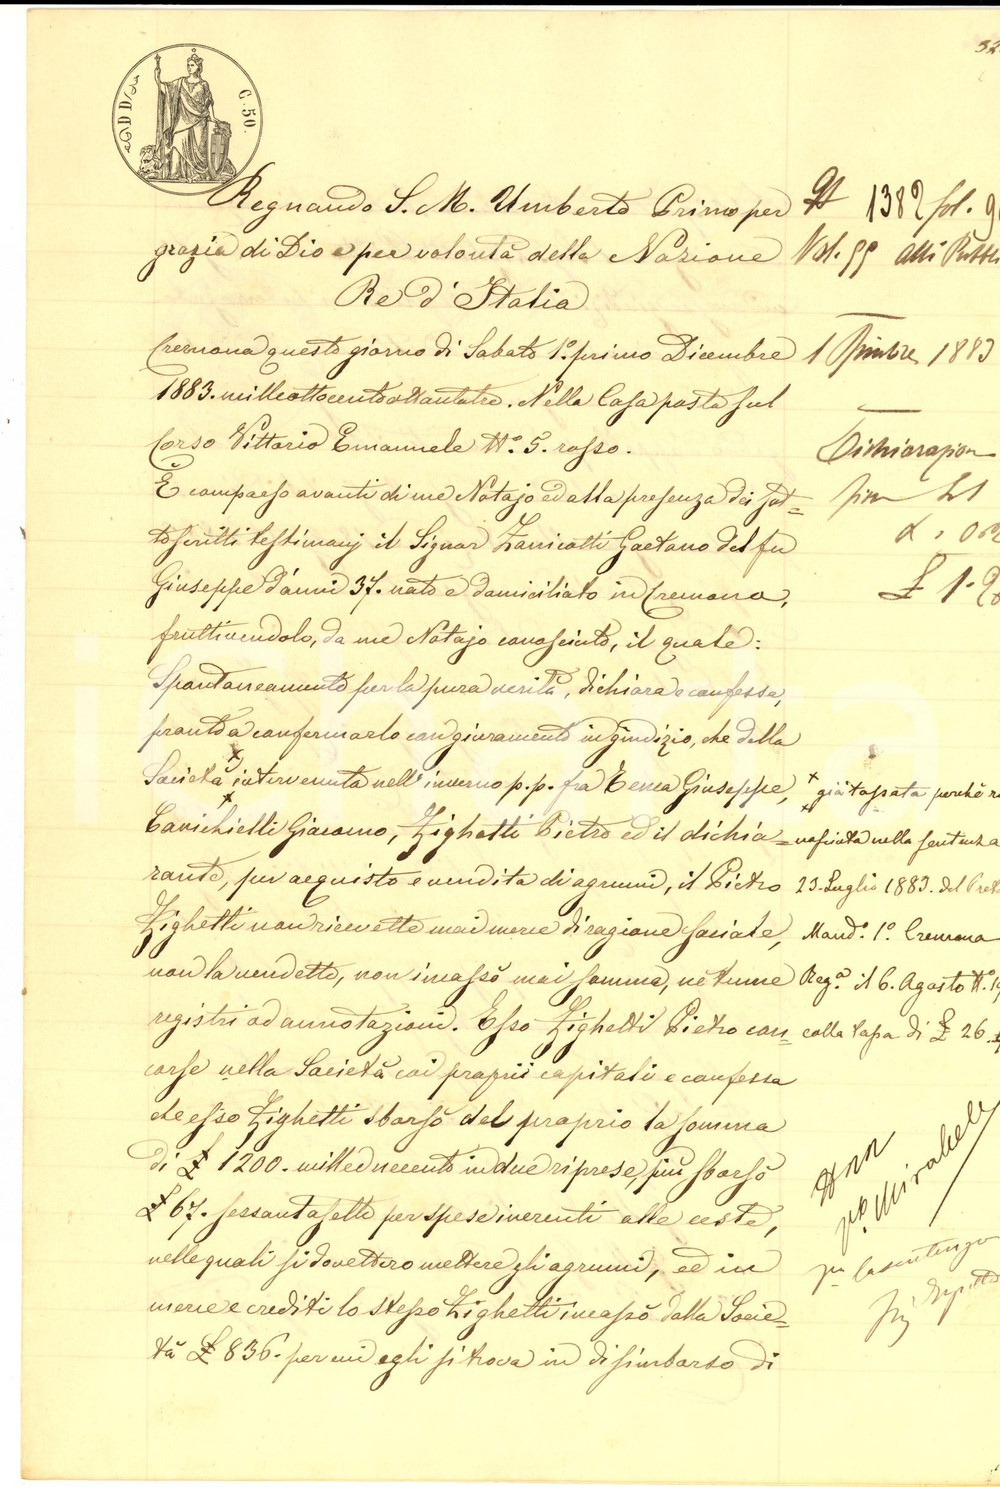 32
C. 50.
Regnando S. M. Umberto Primo per
grazia di Dio e per volontà della Nazione
Re d'Italia
Cremona questo giorno di Sabato 1°. primo Dicembre
1883. milleottocentottantatre. Nella Casa posta sul
Corso Vittorio Emanuele N°. 5. rosso.
È comparso avanti di me Notajo ed alla presenza dei sot=
toscritti testimonj il Signor Zanicotti Gaetano del fu
Giuseppe d'anni 37. nato e domiciliato in Cremona,
fruttivendolo, da me Notajo conosciuto, il quale:
Spontaneamente per la pura verità, dichiara e confessa,
pronto a confermarlo con giuramento in giudizio, che della
Società + intervenuta nell'inverno p.p. fra Tenca Giuseppe,
+ Cavichielli Giacomo, Zighetti Pietro ed il dichia=
rante, per acquisto e vendita di agrumi, il Pietro
Zighetti non ricevette mai merce di ragione sociale,
non la vendette, non incassò mai somma, nè tenne
registri od annotazioni. Esso Zighetti Pietro con=
corse nella Società coi proprii capitali e confessa
che esso Zighetti sborsò del proprio la somma
di £ 1200. milleduecento in due riprese, più sborsò
£ 67. sessantasette per spese inerenti alle ceste,
nelle quali si dovettero mettere gli agrumi, ed in
merce e crediti lo stesso Zighetti incassò dalla Socie=
tà £ 836. per cui egli si trova in disimborso di
N 1382 fol.
Vol. 99 atti
1 Dicembre 1883
Dichiarazion
£ 1.
+ già tassata perchè
+ nosciuta nella sentenza
23. Luglio 1883. del Pret
Mand°. 1°. Cremona
Reg.a il 6. Agosto N°.
colla tassa di £ 26.